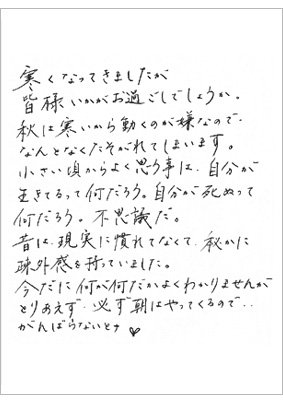 寒くなってきましたが
皆様いかがお過ごしでしょうか。
秋は寒いから動くのが嫌なので
なんとなくたそがれてしまいます。
小さい頃からよく思う事は、自分が
生きてるって何だろう。自分が死ぬって
何だろう。不思議だ。
昔は、現実に慣れてなくて、秘かに
疎外感を持っていました。
今だに何が何だかよくわかりませんが
とりあえず、必ず朝はやってくるので‥
がんばらないとナ ♥